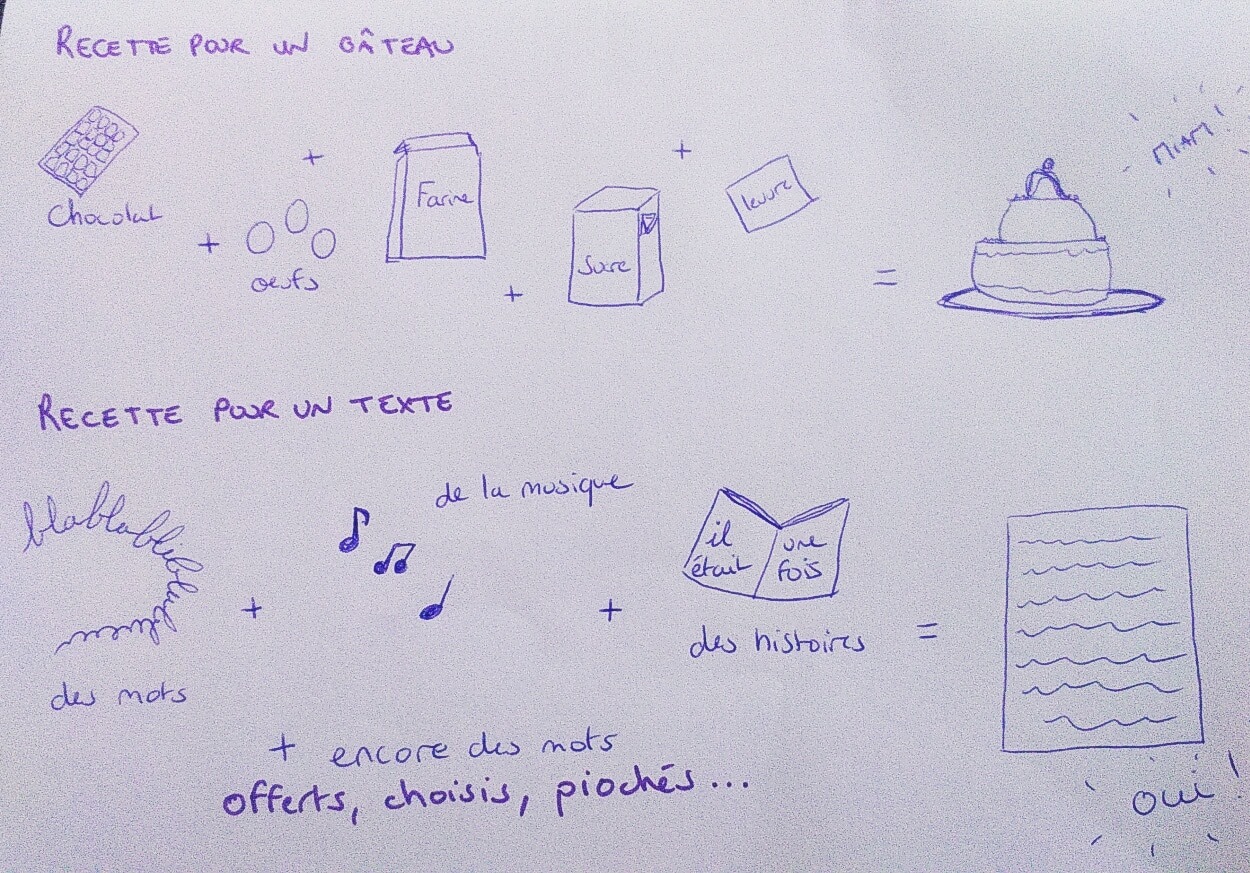 RECETTE POUR UN GÂTEAU
MIAM!
+
+
Farine
levure
Chocolat
+
oeufs
Sucre
+
=
RECETTE POUR UN TEXTE
de la musique
il était
une fois
+
+
=
des histoires
des mots
+ encore des mots
offerts, choisis, piochés...
oui!